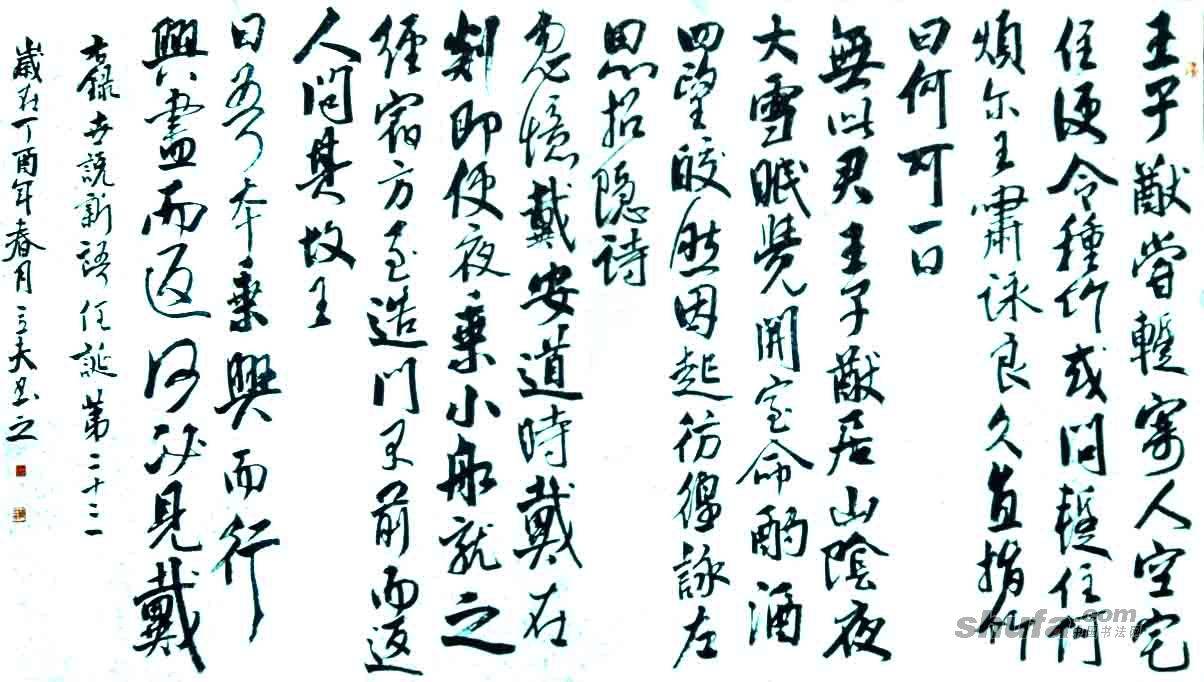 王子猷嘗蹔寄人空宅
住便令種竹或问蹔住何
煩尔王嘯詠良久直指竹
曰何可一日
無此君王子猷居山陰夜
大雪眠覺開室命酌酒
四望皎然因起彷徨詠左
思招隐詩
忽憶戴安道時戴在
剡即便夜乗小船就之
經宿方至造门不前而返
人问其故王
曰吾本乗興而行
興盡而返何必見戴
右録世説新語任誕第二十三
歲在丁酉年春月立夫书之
shufa.com
中国书法网